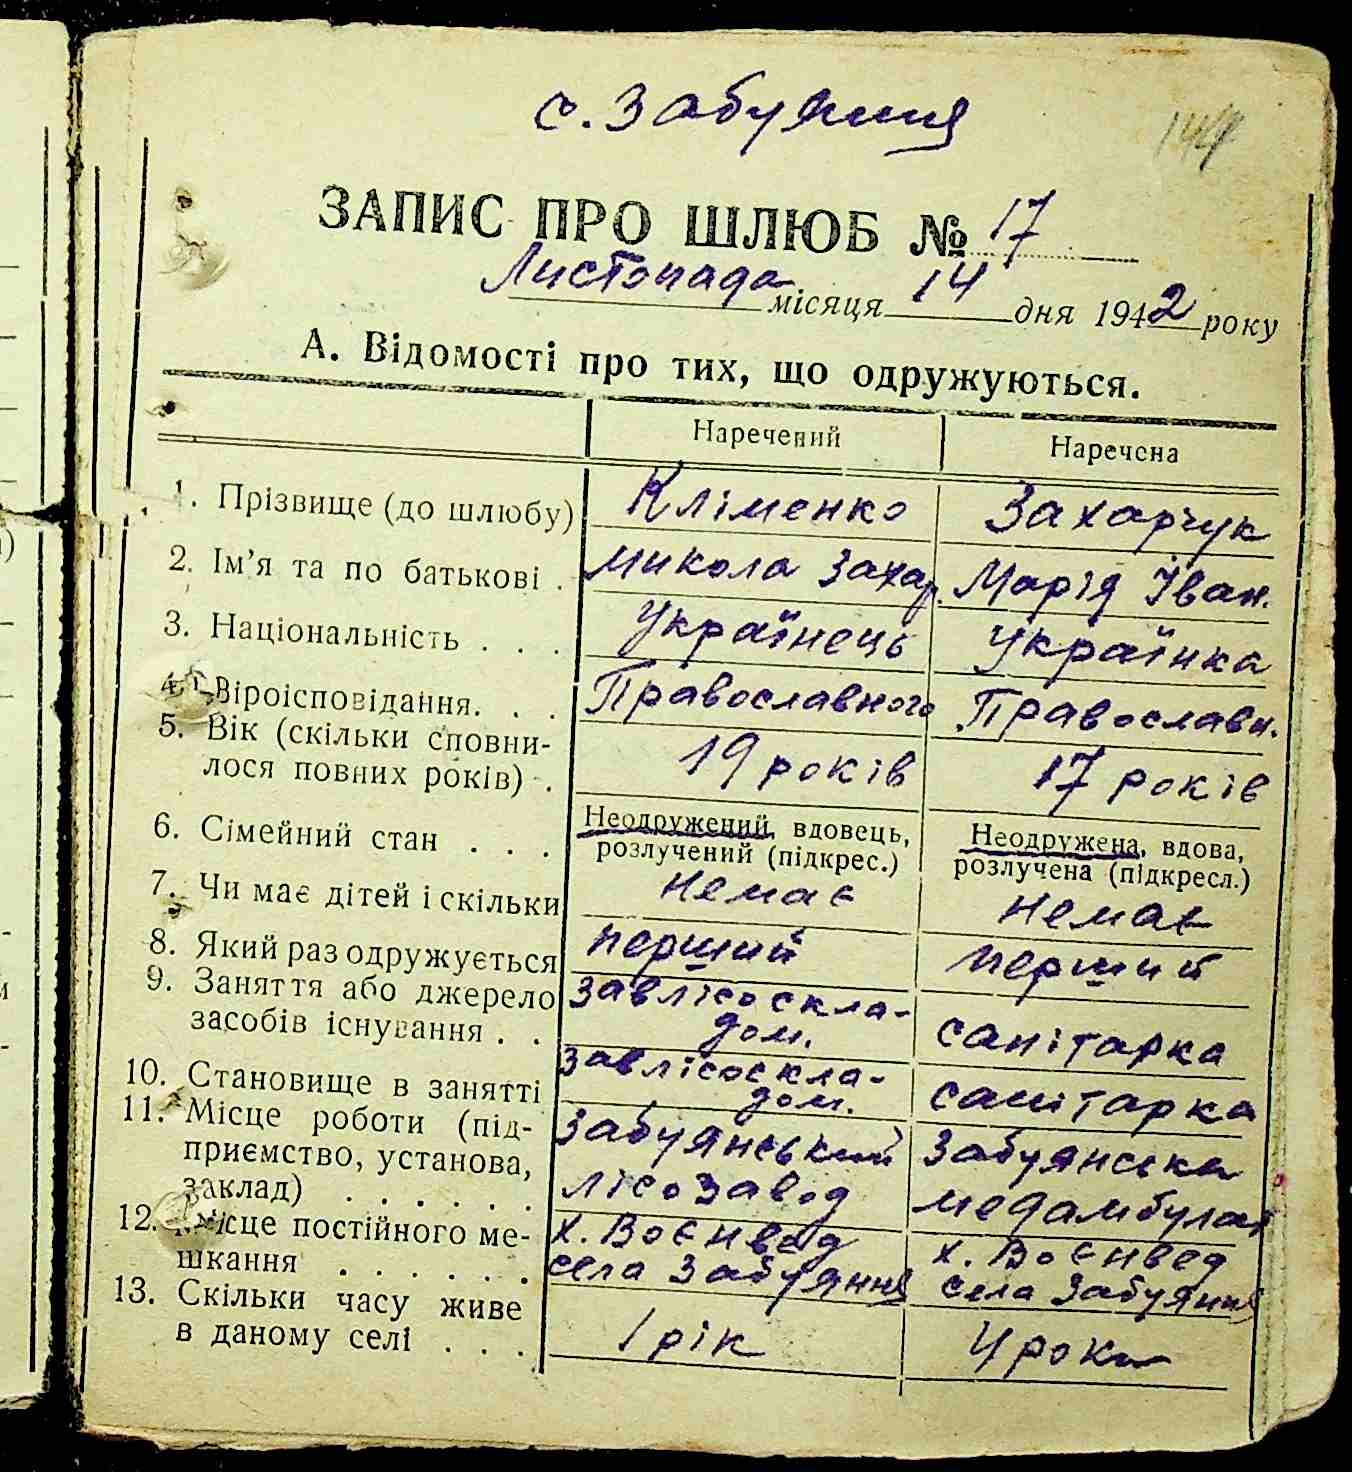 с. Забуяння
144
ЗАПИС ПРО ШЛЮБ № 17
Листопада місяця 14 дня 1942 року
А. Відомості про тих, що одружуються.
Наречений Наречена
1. Прізвище (до шлюбу) Кліменко Захарчук
2. Ім'я та по батькові . Микола Захар. Марія Іван.
3. Національність . . . Українець Українка
4. Віроісповідання. . . Православного Православн.
5. Вік (скільки сповни-
лося повних років) . 19 років 17 років
6. Сімейний стан . . . Неодружений, вдовець, розлучений (підкрес.) Неодружена, вдова, розлучена (підкресл.)
7. Чи має дітей і скільки Немає Немає
8. Який раз одружується перший перший
9. Заняття або джерело завлісоскла-
засобів існування . . дом. санітарка
10. Становище в занятті завлісоскла-дом. санітарка
11. Місце роботи (під- Забуянський Забуянска
приємство, установа, лісозавод медамбулат
заклад) . . . . . .
12. Місце постійного ме- х. Воєнвед х. Воєнвед
шкання . . . . . . села Забуяння села Забуяння
13. Скільки часу живе
в даному селі . . . 1 рік 4 роки